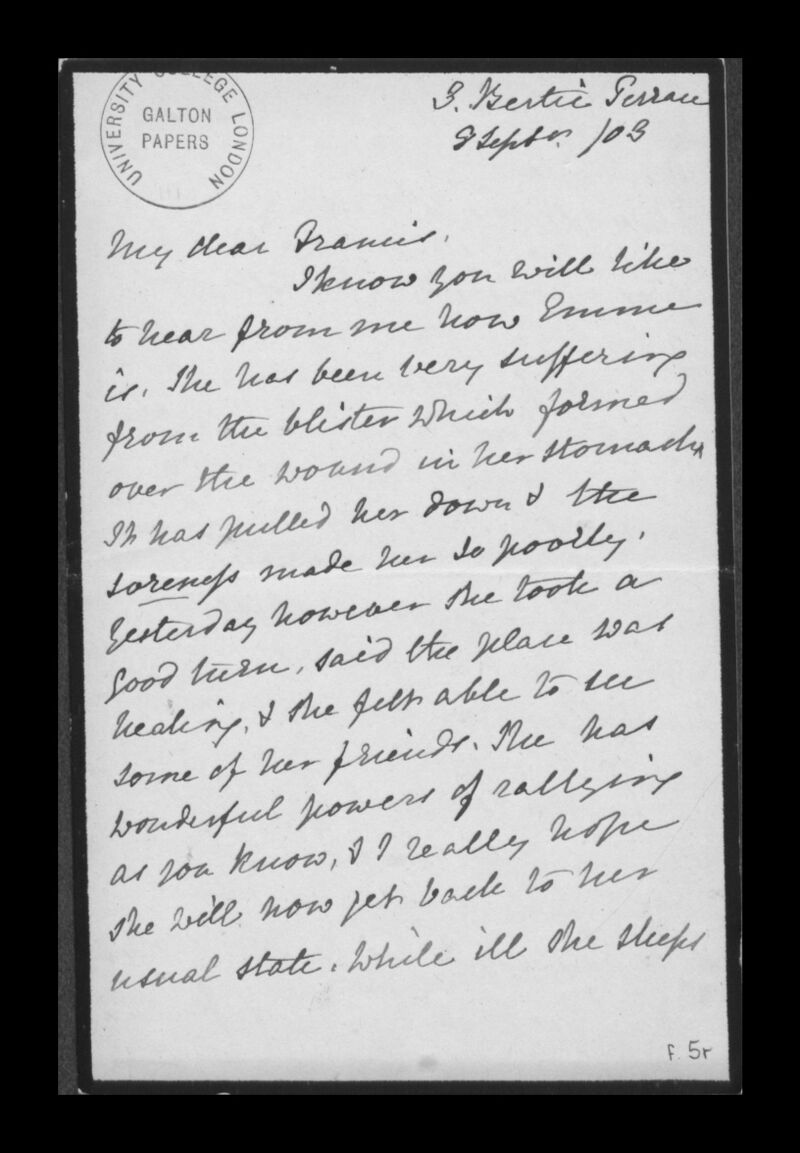 UNIVERSITY COLLEGE LONDON
GALTON
PAPERS
3. Bertie Terrace
8 Septbr. /03
My dear Francis.
I know you will like
to hear from me how Emma
is. She has been very suffering
from the blister which formed
over the wound in her stomach.
It has pulled her down & the
soreness made her so poorly.
Yesterday however she took a
good turn, said the place was
healing, & she felt able to see
some of her friends. She has
wonderful powers of rallying
as you know, & I really hope
she will now get back to her
usual state. While ill she sleeps
F. 5r